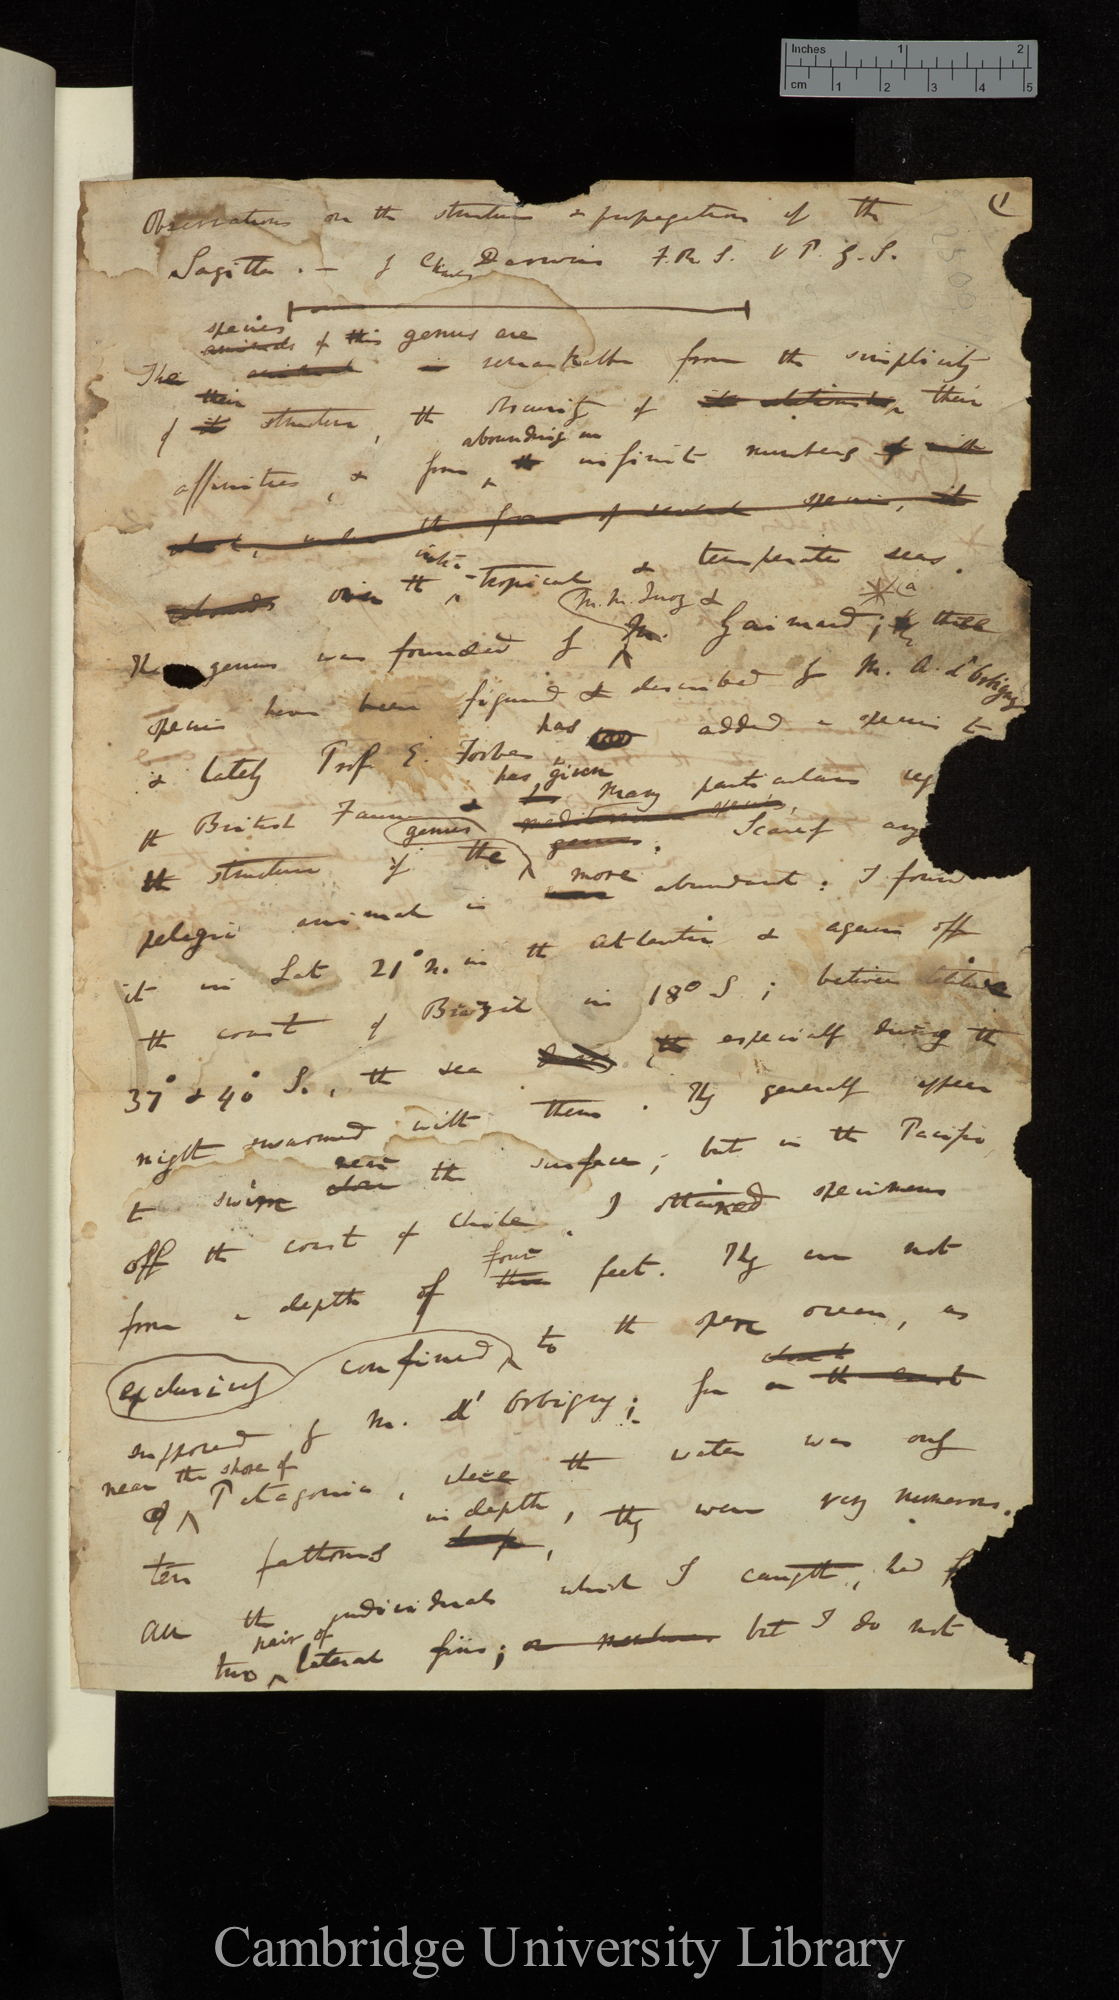 Inches 1 2
cm 1 2 3 4 5
(1
Observations on the structure & propagation of the
Sagitta. — by Charles Darwin F.R.S. V P. G. S.
species
animals of this genus are
The animal is remarkable from the simplicity
their
of it structure, the obscurity of its relationship their
abounding in
affinities, & from the infinite numbers of with
which, under the form of several species, it
intra-
abounds over the tropical & temperate seas.
M.M. Quoy & a
The genus was founded by M. Gaimard; three
species have been figured & described by M. A. d'Orbigny
has
& lately Prof E. Forbes has added a species to
has given
the British Fauna & many particulars
genus mediterranean species,
the structure of the genus. Scarcely any
more
pelagic animal is more abundant: I found
it in Lat 21° N. in the Atlantic & again off
the coast of Brazil in 18° S; between latitude
37° & 40° S., the sea the especially during the
night swarmed with them. They generally appear
near
to swim close the surface; but in the Pacific,
off the coast of Chile, I obtained specimens
four
from a depth of three feet. They are not
exclusively confined to the open ocean, as
coast
supposed by M. d'Orbigny; for on the coast
near the shore of
of Patagonia, where the water was only
in depth
ten fathoms deep, they were very numerous.
All the individuals which I caught, had
pair of
two lateral fins; or membranes but I do not
Cambridge University Library